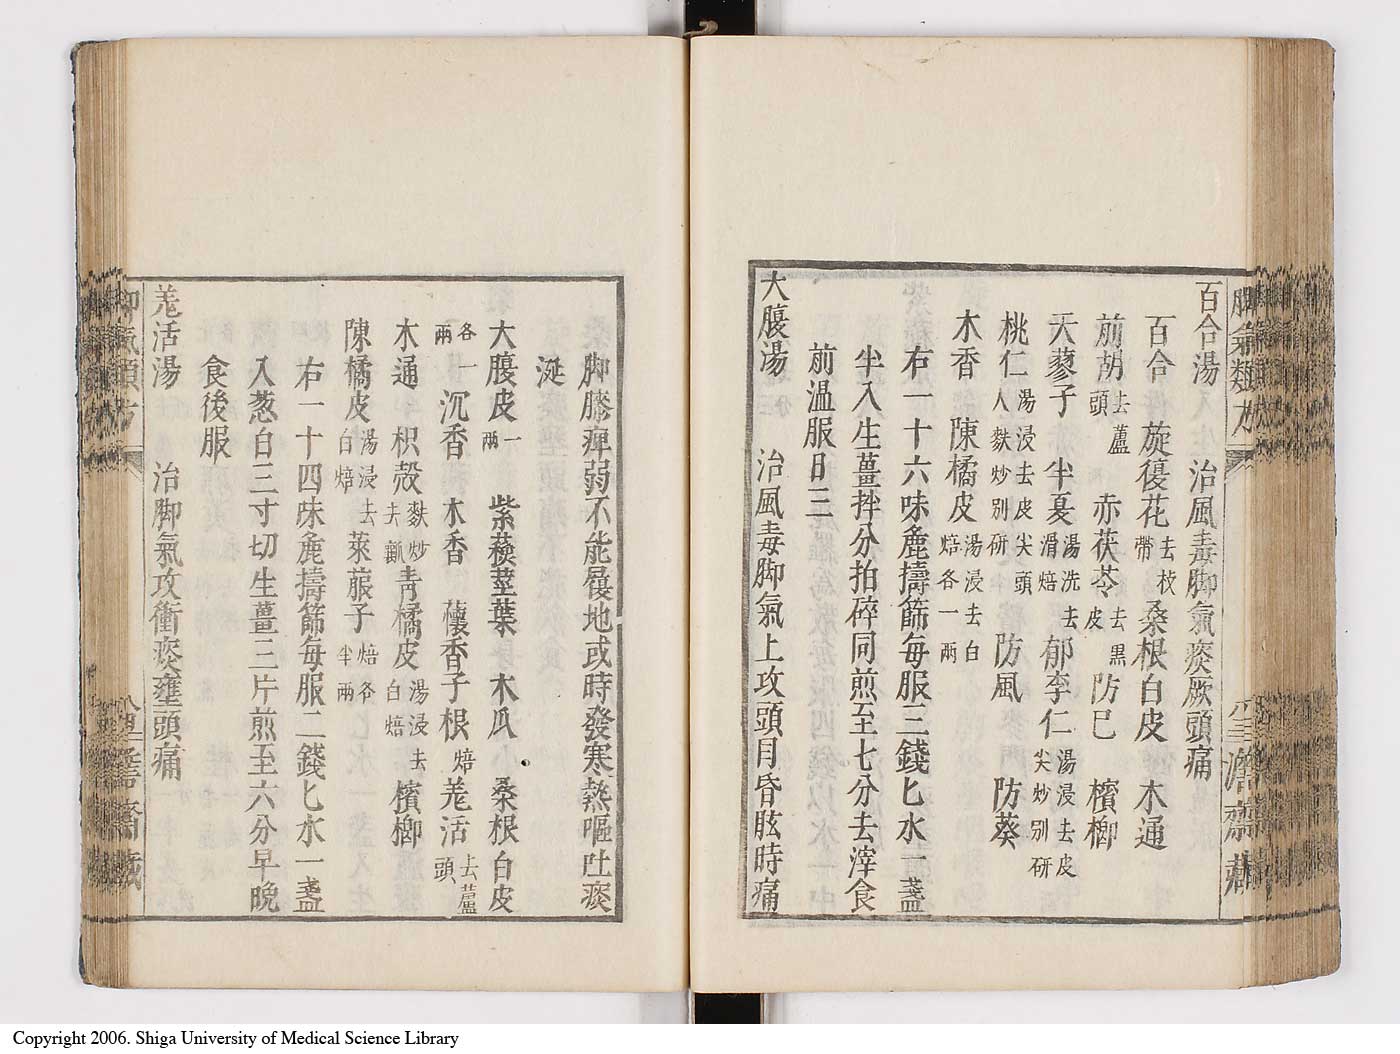 百合湯　治風毒脚氣痰厥頭痛
百合　旋復花去枝帶　桑根白皮　木通
前胡去蘆頭　赤茯苓去黒皮　防已　檳榔
天蓼子　半夏湯洗去滑焙　郁李仁湯浸去皮尖炒別研
桃仁湯浸去皮尖頭人麩炒別研　防風　防葵
木香　陳橘皮湯浸去白焙各一兩
右一十六味麁擣篩毎服三錢匕水一盞
半入生薑拌分拍碎同煎至七分去滓食
前温服日三
大腹湯　治風毒脚氣上攻頭目昏眩時痛
脚膝痺弱不能履地或時發寒熱嘔吐痰
涎
大腹皮一兩　紫蘓莖葉　木瓜　桑根白皮
各一兩　沉香　木香　蘹香子根焙　羗活去蘆頭
木通　枳殻麩炒去瓤　青橘皮湯浸去白焙　檳榔
陳橘皮湯浸去白焙　萊菔子焙各半兩
右一十四味麁擣篩毎服二錢匕水一盞
入葱白三寸切生薑三片煎至六分早晩
食後服
羗活湯　治脚氣攻衝痰壅頭痛
Copyright 2006. Shiga University of Medical Science Library